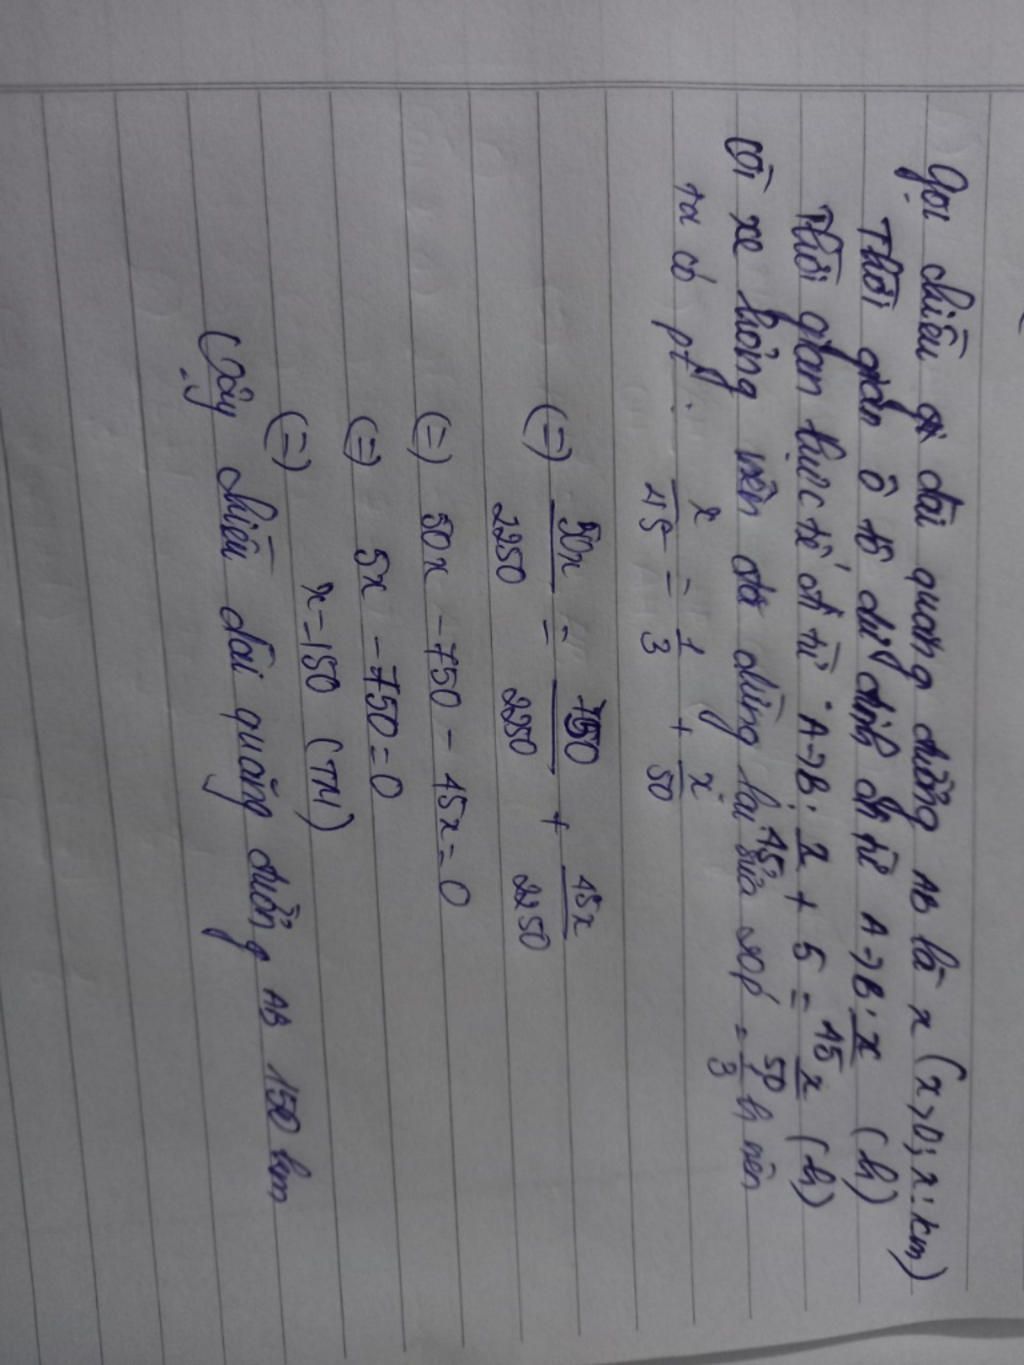 Gọi chiều dài quãng đường AB là x (x>0; x: km)
Thời gian ô tô dự định đi từ A→B: x/45 (h)
Thời gian thực tế đi từ A→B: x/45 + 5 = x/50 (h)
Vì xe hỏng nên đã dừng lại sửa = 1/3 h nên
ta có pt: x/45 = 1/3 + x/50
(=) 50x/2250 = 750/2250 + 45x/2250
(=) 50x - 750 - 45x = 0
(=) 5x - 750 = 0
(=) x = 150 (TM)
Vậy chiều dài quãng đường AB 150 km